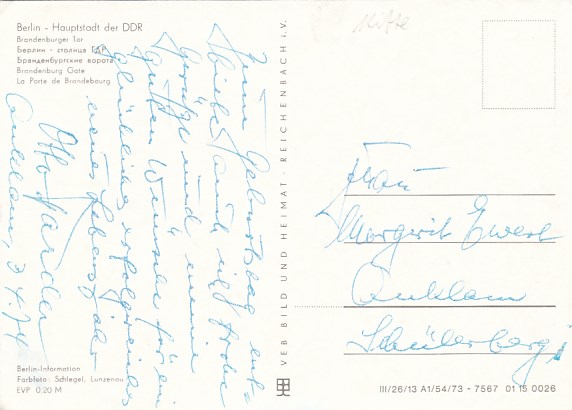 Berlin - Hauptstadt der DDR
Brandenburger Tor
Берлин - столица ГДР
Бранденбургские ворота
Brandenburg Gate
La Porte de Brandebourg
Zum Geburtstag ent-
bietet auch
Grüße und meine
guten Wünsche für ein
glückliches erfolgreiches
neues Lebensjahr
Otto
Anklam, 3.4.74
Berlin-Information
Farbfoto: Schlegel, Lunzenau
EVP 0.20 M
VEB BILD UND HEIMAT · REICHENBACH i. V.
Frau
Margrit Ewert
Anklam
Schülerberg
III/26/13 A1/54/73 - 7567 01 15 0026